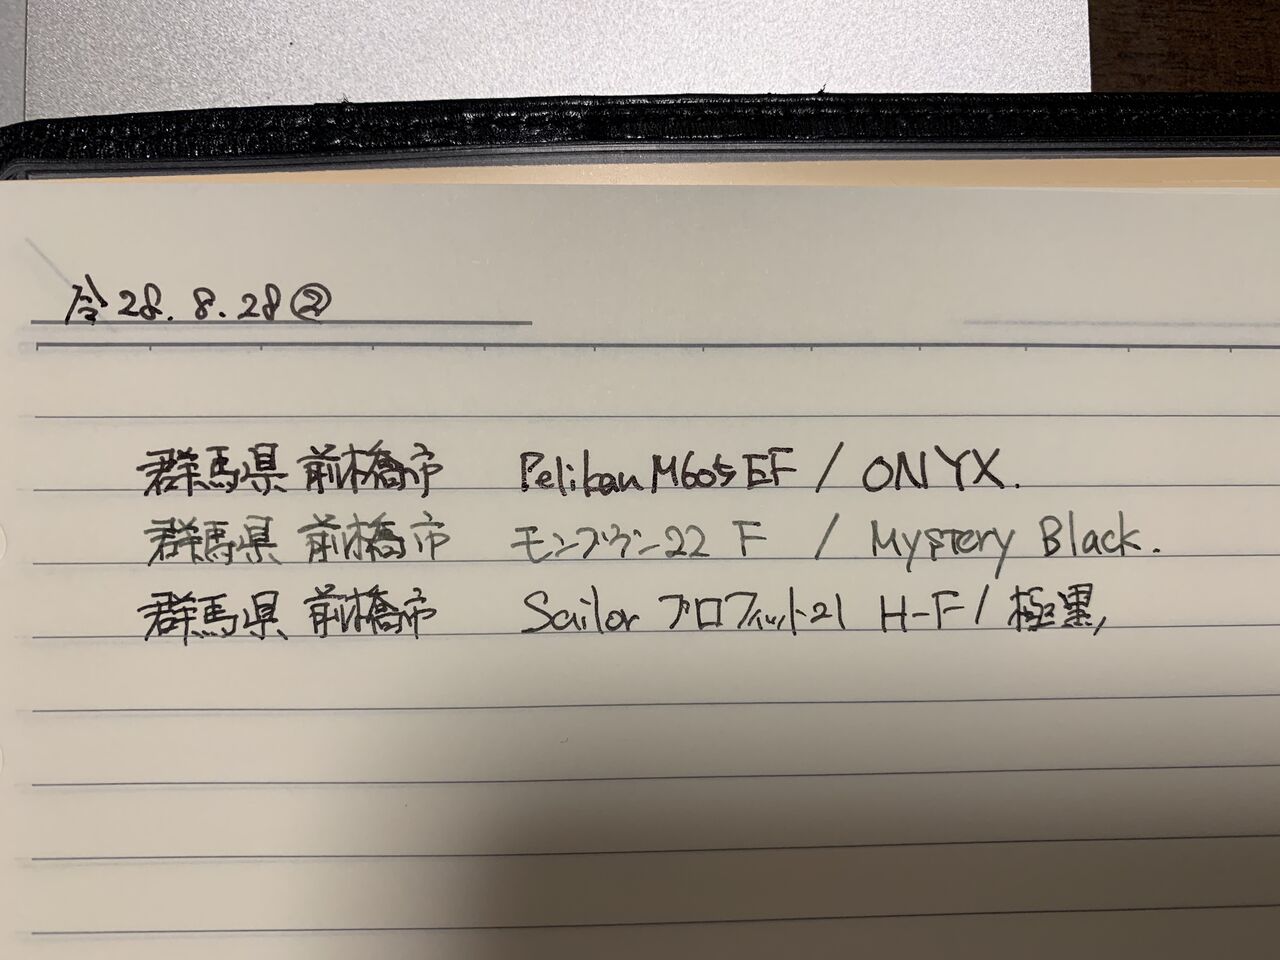 令28.8.28②
群馬県 前橋市 Pelikan M605 EF / ONYX.
群馬県 前橋市 モンブラン22 F / Mystery Black.
群馬県 前橋市 Sailor プロフィット21 H-F / 極黒,